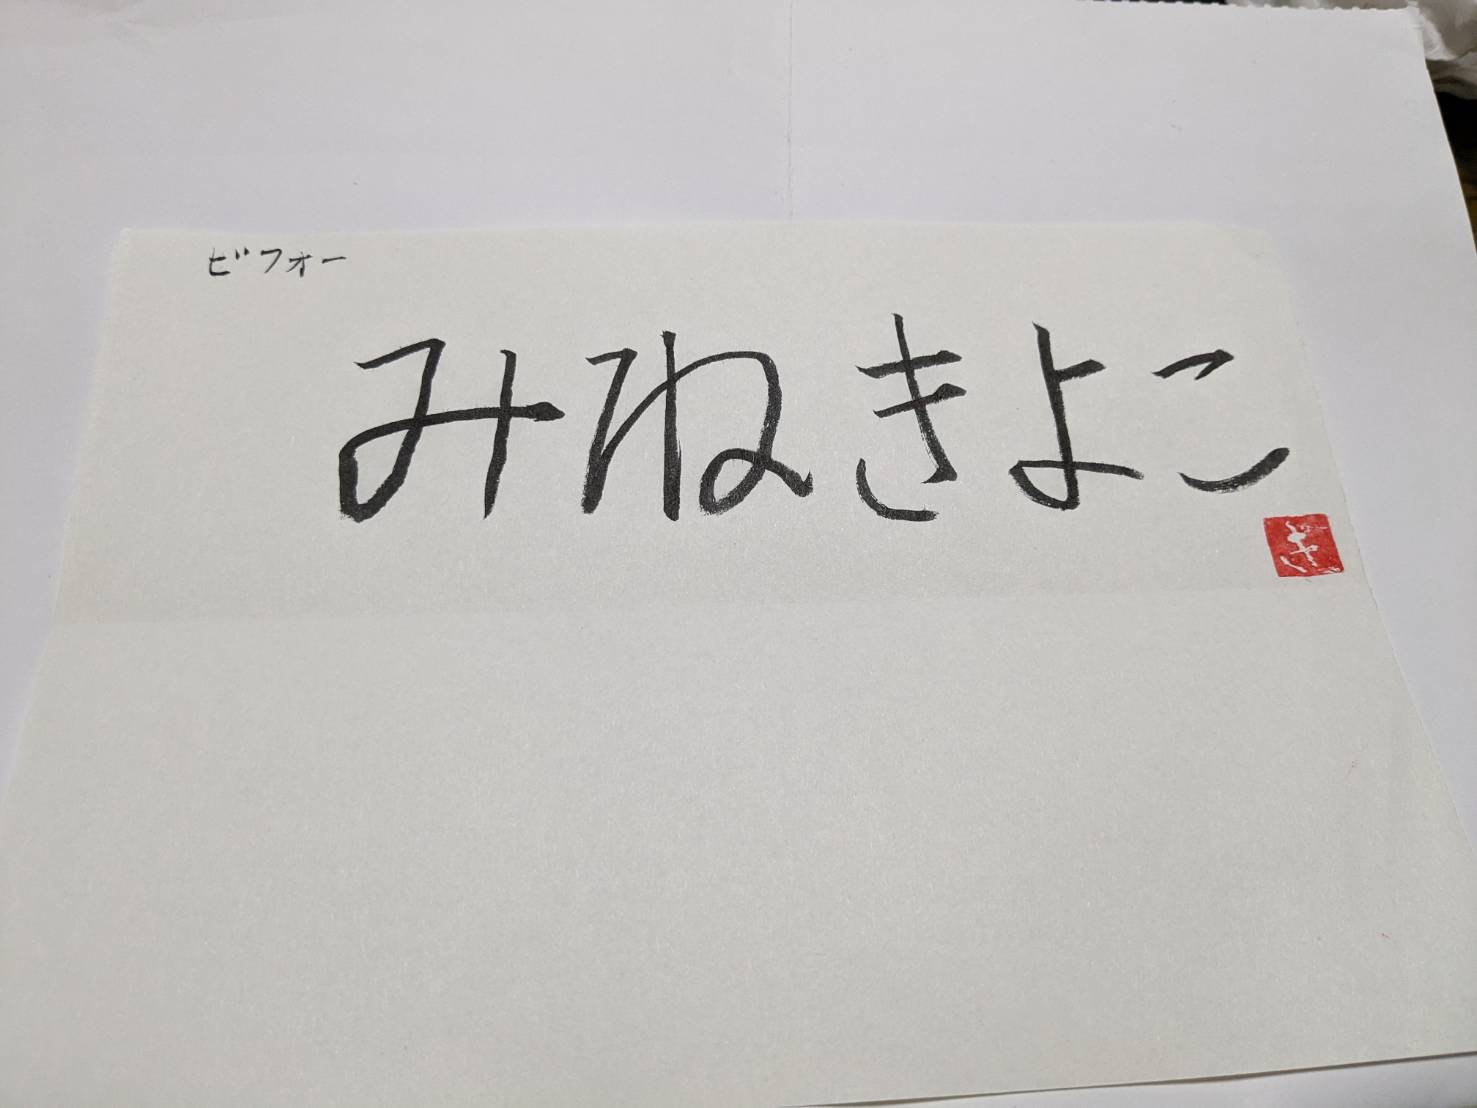 ビフォー
みねきよこ
き